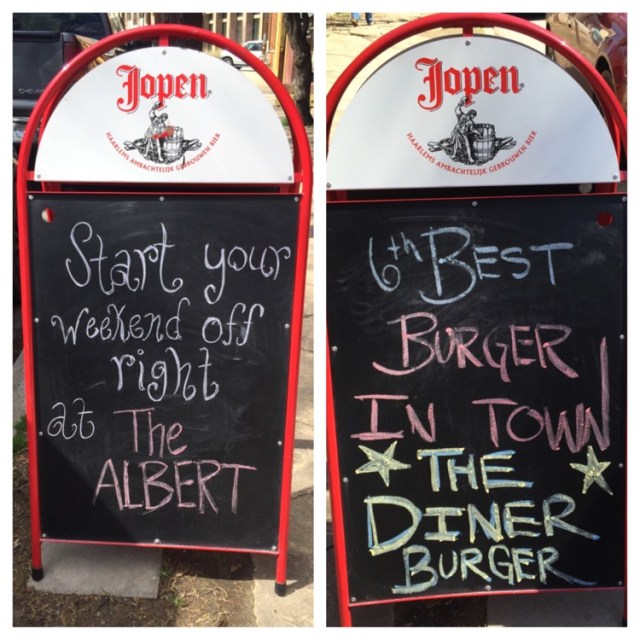 Jopen
HAARLEMS AMBACHTELIJK GEBROUWEN BIER
Start your
weekend off
right
at The
ALBERT
Jopen
HAARLEMS AMBACHTELIJK GEBROUWEN BIER
6th BEST
BURGER
IN TOWN
THE
DINER
BURGER